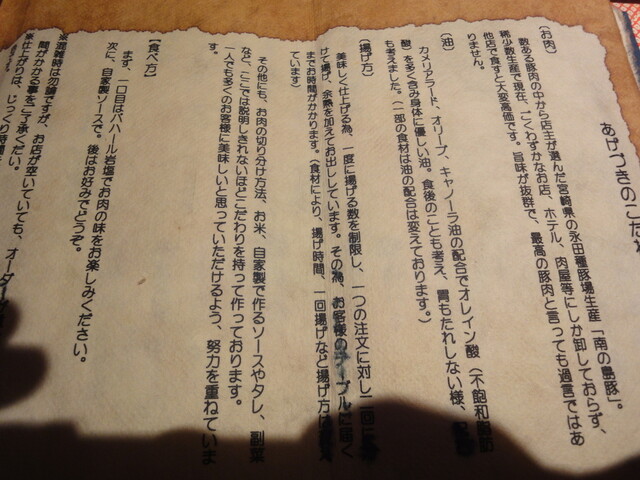 あげづきのこだわ
(お肉)
数ある豚肉の中から店主が選んだ宮崎県の永田種豚場生産「南の島豚」。
稀少数生産で現在、ごくわずかなお店、ホテル、肉屋等にしか卸しておらず、
他店で食すと大変高価です。旨味が抜群で、最高の豚肉と言っても過言ではあ
りません。
(油)
カメリアラード、オリーブ、キャノーラ油の配合でオレイン酸(不飽和脂肪
酸)を多く含み身体に優しい油。食後のことも考え、胃もたれしない様、
も考えました。(一部の食材は油の配合は変えております。)
(揚げ方)
美味しく仕上げる為、一度に揚げる数を制限し、一つの注文に対し二回に
けて揚げ、余熱を加えてお出ししています。その為、お客様のテーブルに届く
までお時間がかかります。(食材により、揚げ時間、一回揚げなど揚げ方は
ています)
その他にも、お肉の切り分け方法、お米、自家製で作るソースやタレ、副菜
など、ここでは説明しきれないほどこだわりを持って作っております。
一人でも多くのお客様に美味しいと思っていただけるよう、努力を重ねていま
す。
【食べ方】
まず、一口目はパハール岩塩でお肉の味をお楽しみください。
次に、自家製ソースで。後はお好みでどうぞ。
※混雑時は勿論ですが、お店が空いていても、オーダー
間がかかる事をご了承ください。
※仕上がりは、じっくり時間を